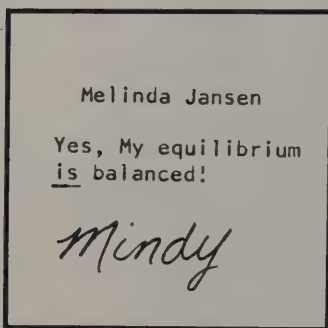 Melinda Jansen
Yes, My equilibrium
is balanced!
Mindy